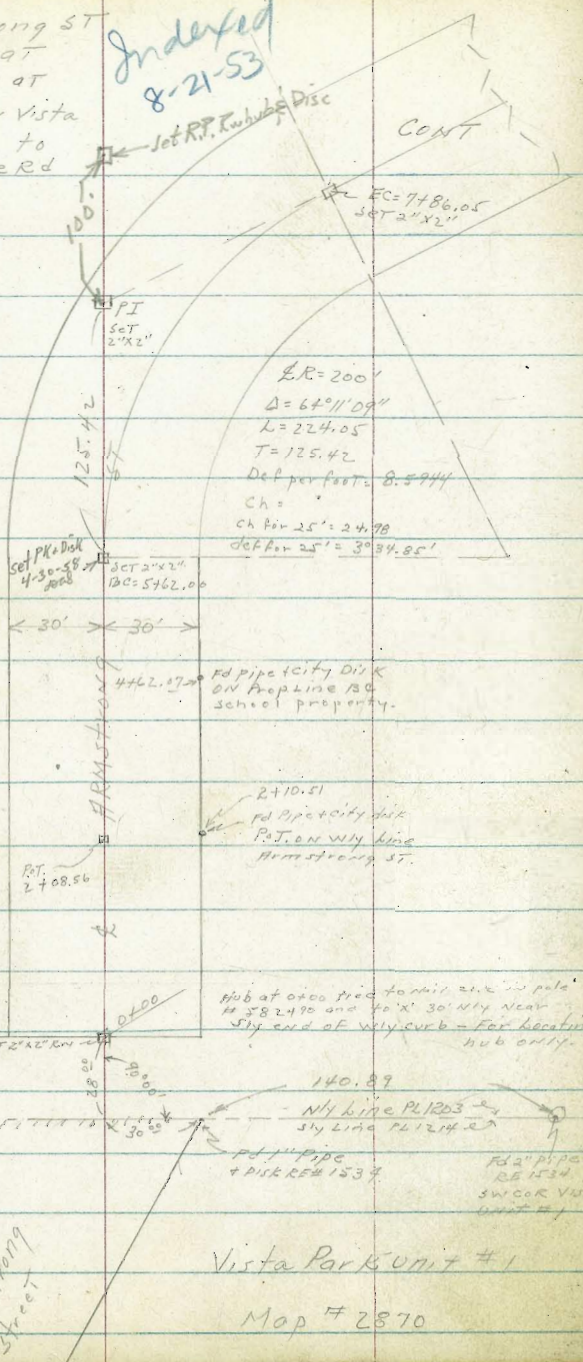 ong ST
at
at
Vista
to
e Rd
Indexed
8-21-53
Set R.P. Rwhub & Disc
CONT
100.
EC=7+86.05
SET 2"x2"
PI
SET
2"x2"
125.42
ST
℄R=200'
Δ=64°11'09"
L=224.05
T=125.42
Def per foot= 8.5944
Ch=
Ch for 25'=24.98
def for 25'=3°34.85'
Set PK+Disk
4-30-58
SET 2"x2"
BC=5+62.00
30'
30'
4+62.07
Fd pipe+City Disk
ON Prop Line BC
school property.
ARMSTRONG
2+10.51
Fd Pipe+city disk
P.O.T. ON Wly Line
Armstrong ST.
P.O.T.
2+08.56
℄
0+00
Hub at 0+00 tied to nail in pole
# 582490 and to 'x' 30' Nly Near
Sly end of Wly curb - For Locatin
hub only.
2"x2" RW
28.00
90°00'
30.00
140.89
Nly Line PL1203
Sly Line PL1214
Fd 1" Pipe
+ DISK RE# 1534
Fd 2" pipe
RE 1534
SW COR VIS
UNIT #1
ong
Street
Vista Park Unit #1
Map # 2870